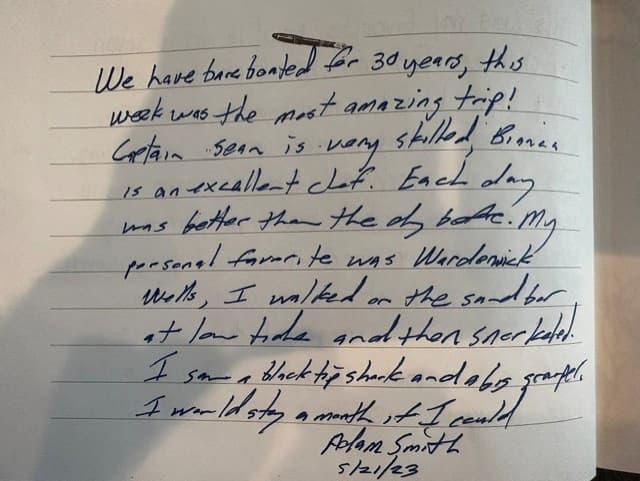 We have bareboated for 30 years, this
week was the most amazing trip!
Captain Sean is very skilled, Bianca
is an excellent chef. Each day
was better than the dy before. My
personal favorite was Warderwick
Wells, I walked on the sandbar
at low tide and then snorkeled.
I saw a black tip shark and a big
I would stay a month if I could
Adam Smith
5/21/23